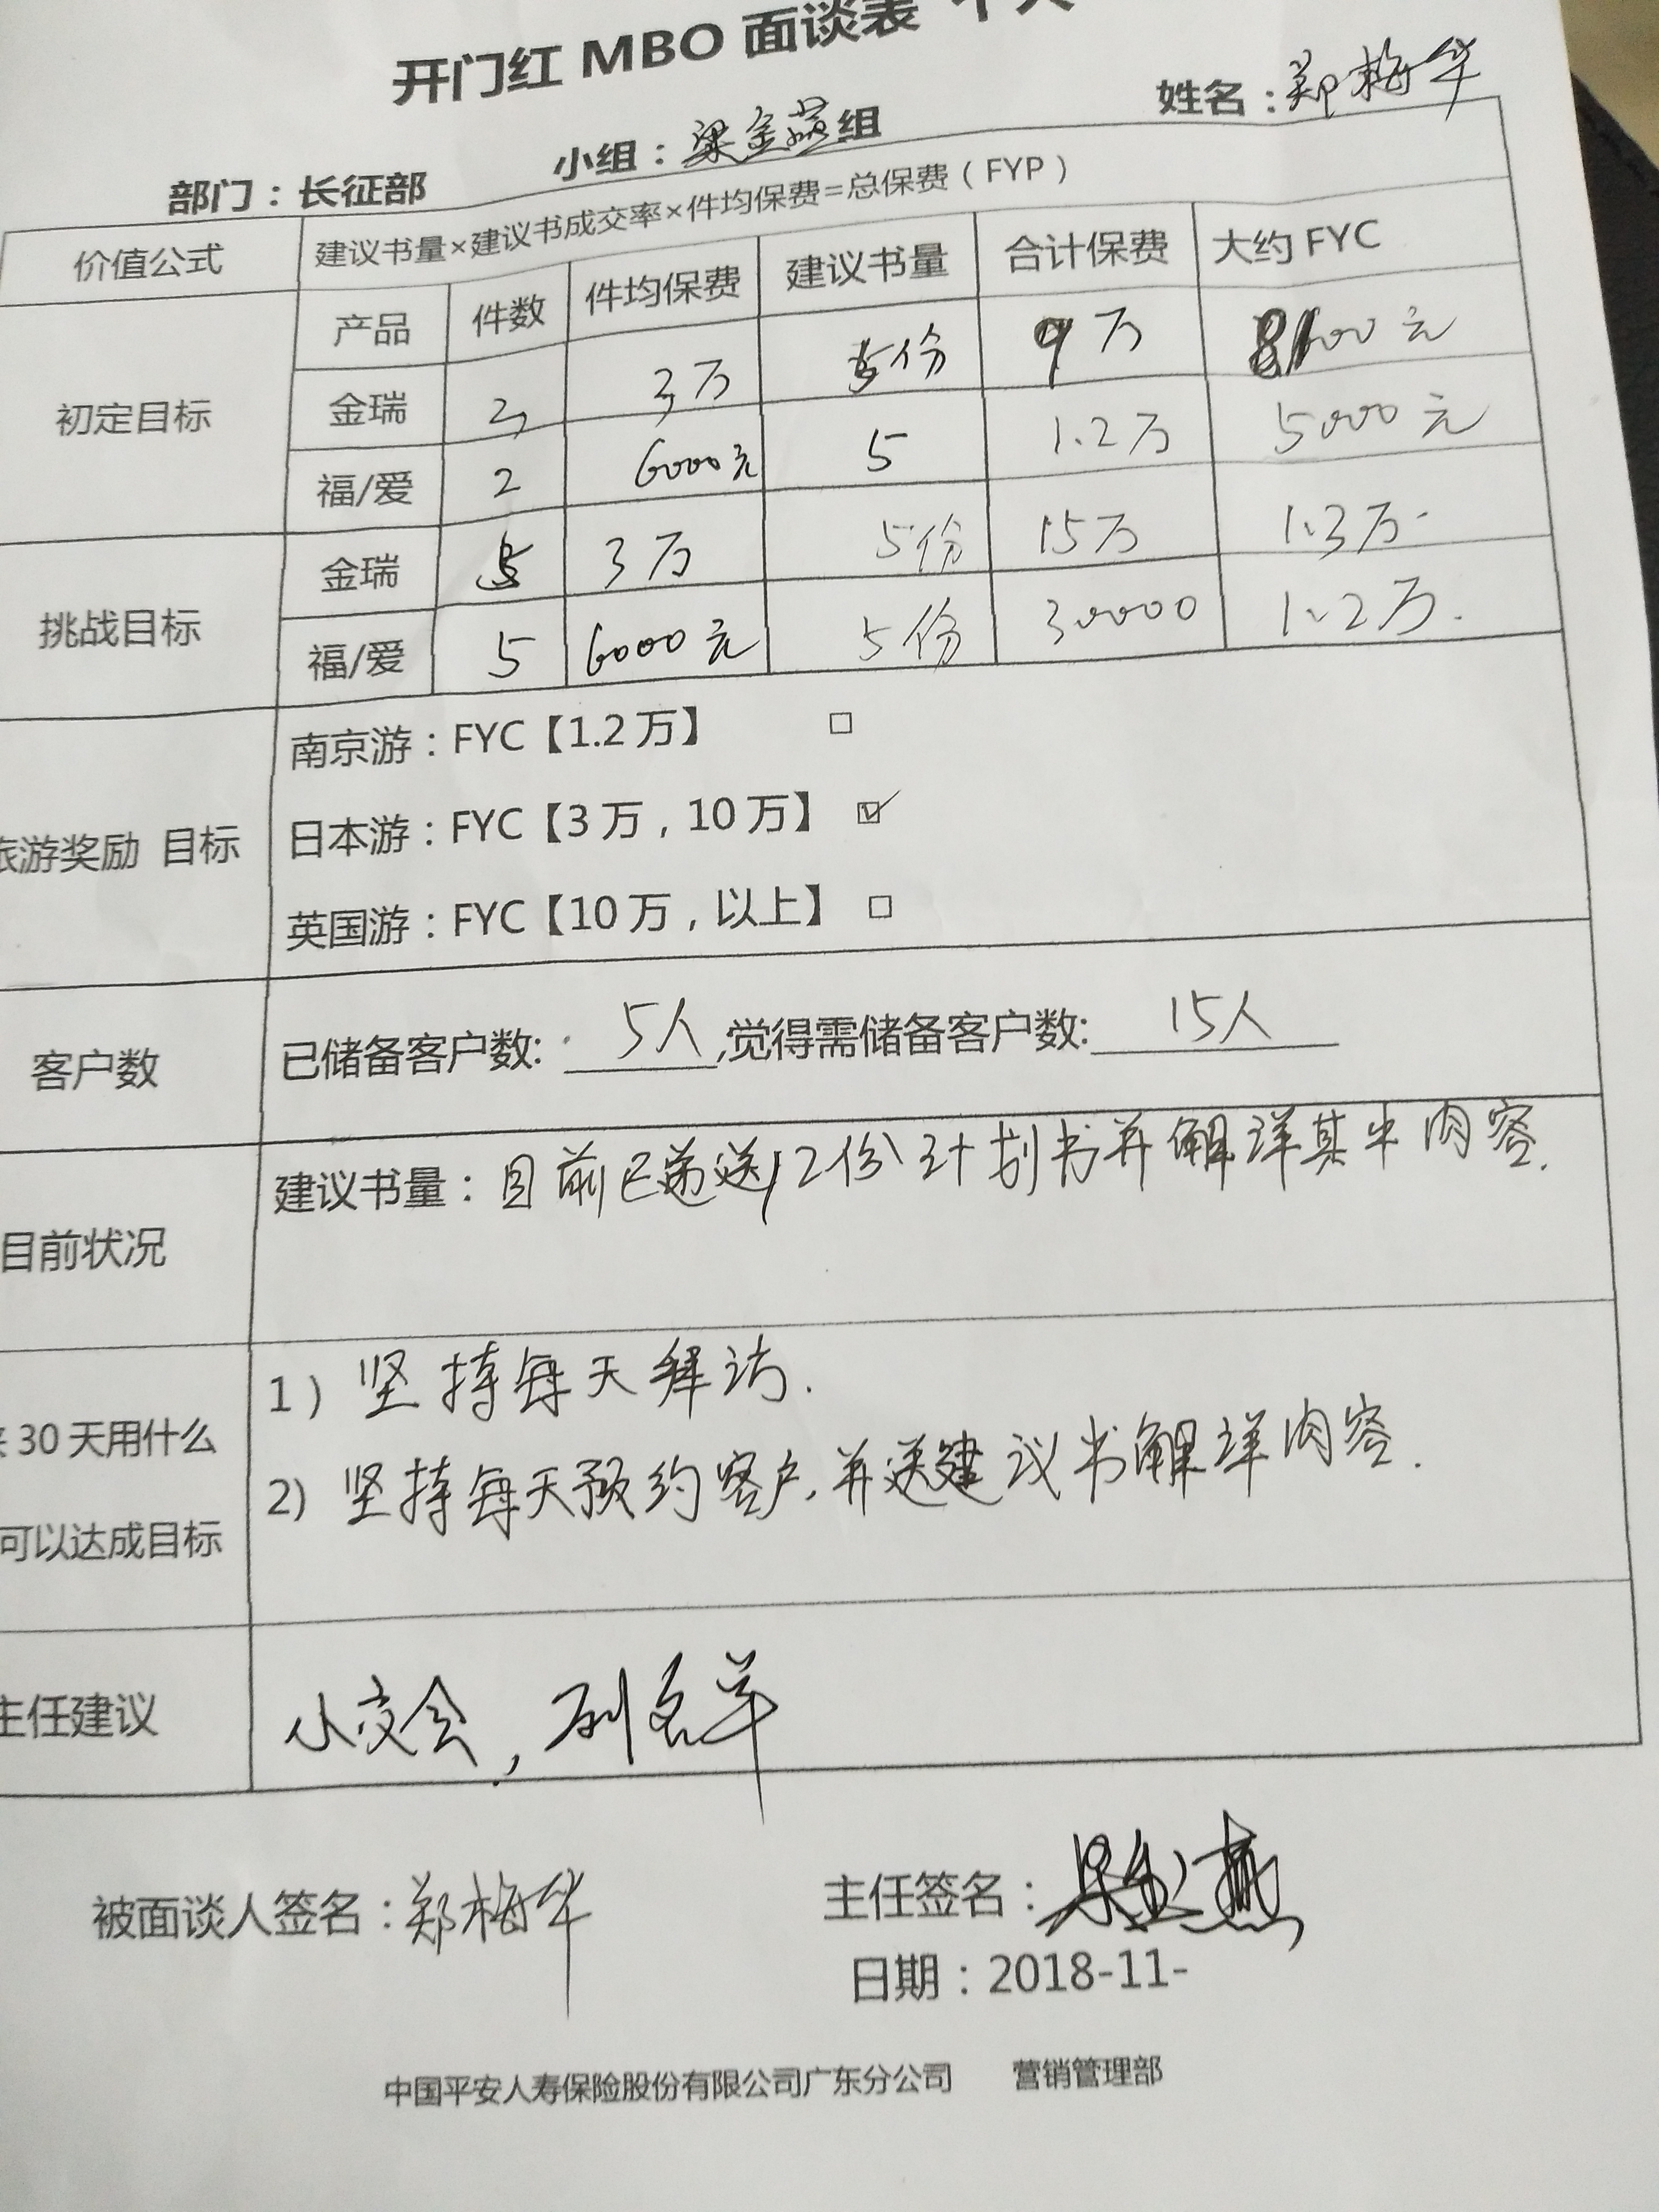 开门红 MBO 面谈表 个人
部门：长征部 小组：梁金燕组 姓名：郑梅华
价值公式 建议书量×建议书成交率×件均保费=总保费（FYP）
产品 件数 件均保费 建议书量 合计保费 大约 FYC
初定目标
金瑞 3 3万 5份 9万 8100元
福/爱 2 6000元 5 1.2万 5000元
挑战目标
金瑞 5 3万 5份 15万 1.3万.
福/爱 5 6000元 5份 30000 1.2万.
旅游奖励 目标
南京游：FYC【1.2万】 □
日本游：FYC【3万，10万】 ☑
英国游：FYC【10万，以上】 □
客户数 已储备客户数: 5人 ,觉得需储备客户数: 15人
目前状况 建议书量：目前已递送12份计划书并解详其中内容.
30天用什么
可以达成目标
1）坚持每天拜访.
2）坚持每天预约客户,并送建议书解详内容.
主任建议 小交会，列名单
被面谈人签名：郑梅华 主任签名：梁金燕
日期：2018-11-
中国平安人寿保险股份有限公司广东分公司 营销管理部